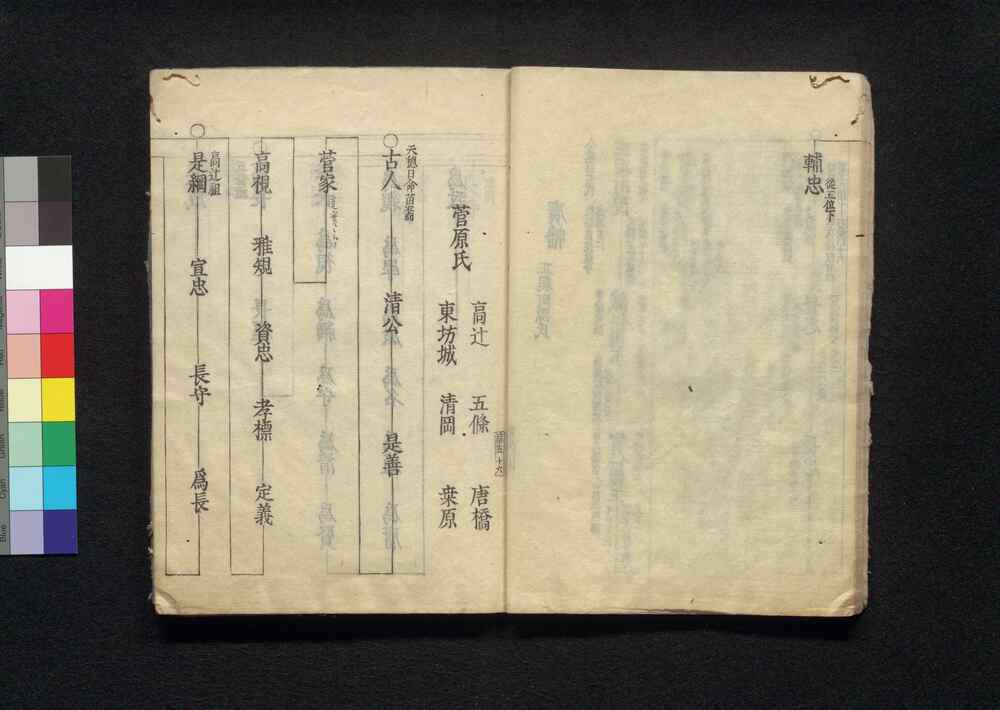 輔忠 從五位下
菅原氏
高辻 五條 唐橋
東坊城 清岡 桒原
天穂日命苗裔
古人 清公 是善
菅家
高視 雅規 資忠 孝標 定義
高辻祖
是綱 宣忠 長守 爲長